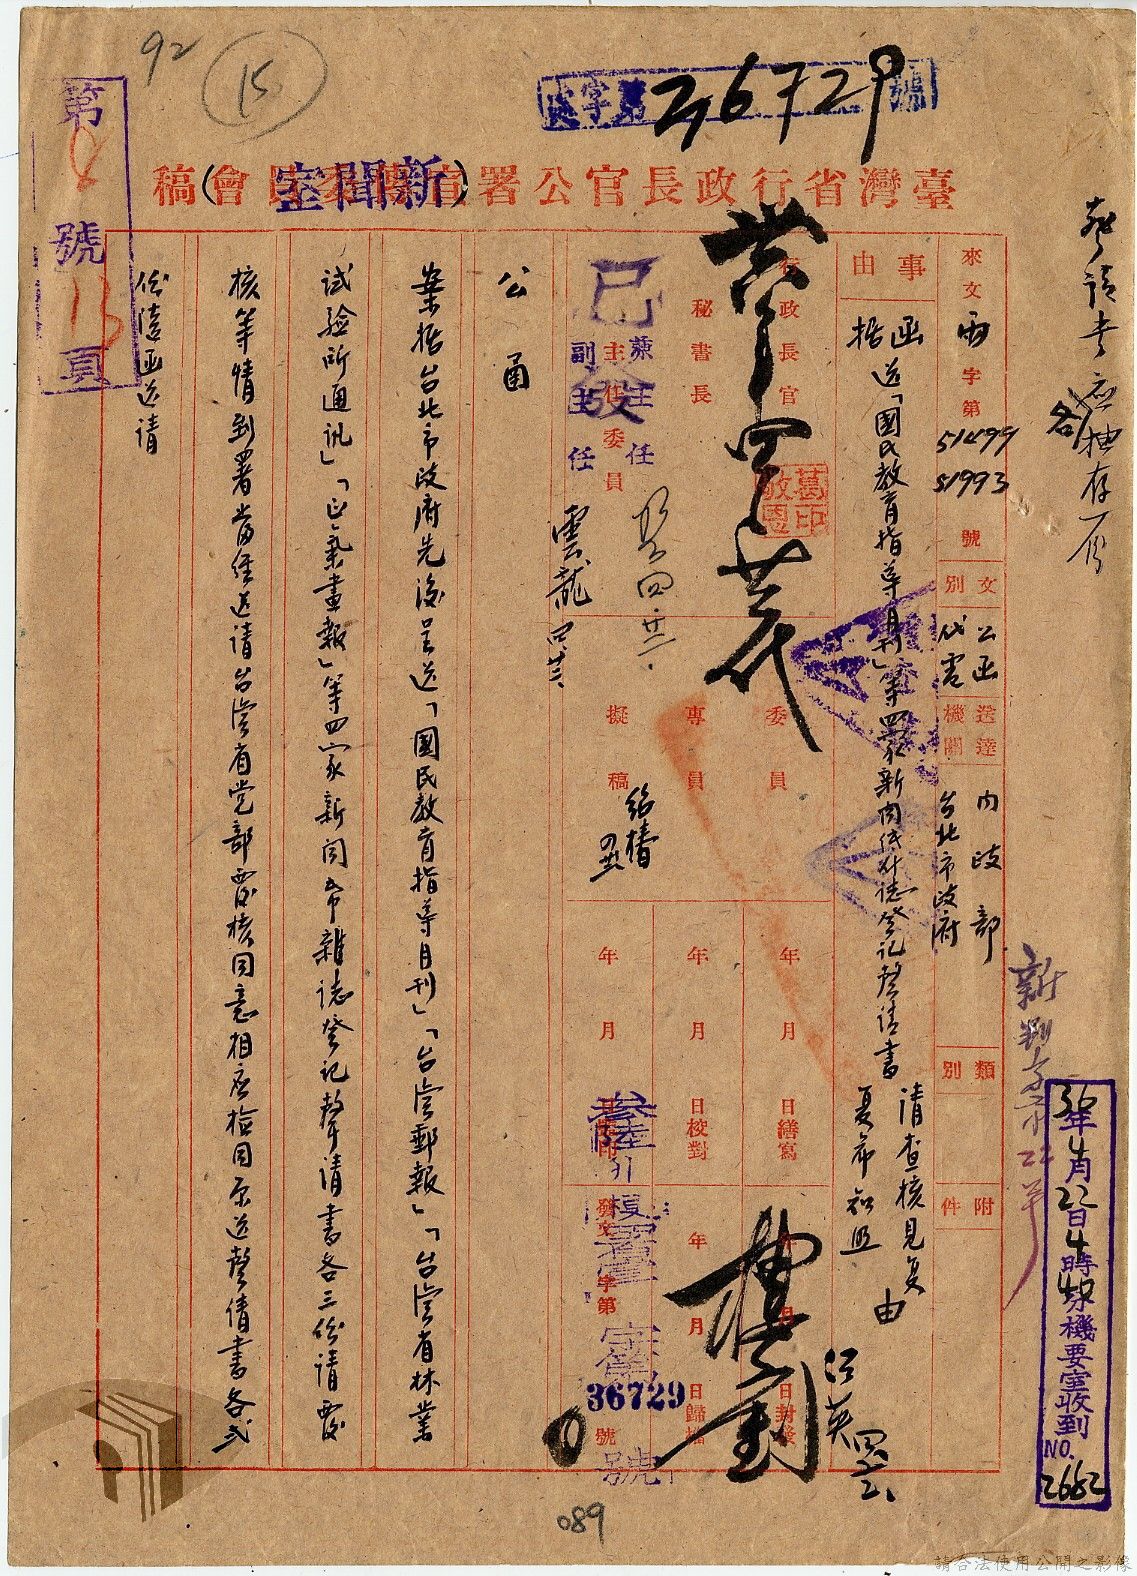 92
15
字第36729號
臺灣省行政長官公署(新聞室)稿
第
號
13
頁
聲請書應抽存一份
來文
字第
51499
51993
號
文別
公函
代電
送達機關
內政部
台北市政府
類別
附件
事由
函送「國民教育指導月刊」等四家新聞紙雜誌登記聲請書請查核見复由
据
复希知照
行政長官
秘書長
葛敬恩印
主任委員
兼主任
副主任
雲龍
委員
專員
擬稿
紹椿
年 月 日繕寫
年 月 日校對
年 月 日蓋印
年 月 日封發
年 月 日歸檔
發文 字第
36729
號
公函
案据台北市政府先後呈送「國民教育指導月刊」「台灣郵報」「台灣省林業
試驗所通訊」「正氣畫報」等四家新聞帋雜誌登記聲請書各三份請覆
核等情到署當經送請台灣省党部覆核同意相应檢同原送聲請書各弍
份隨函送請
36年4月22日4時40分機要室收到
NO. 2682
089
請合法使用公開之影像